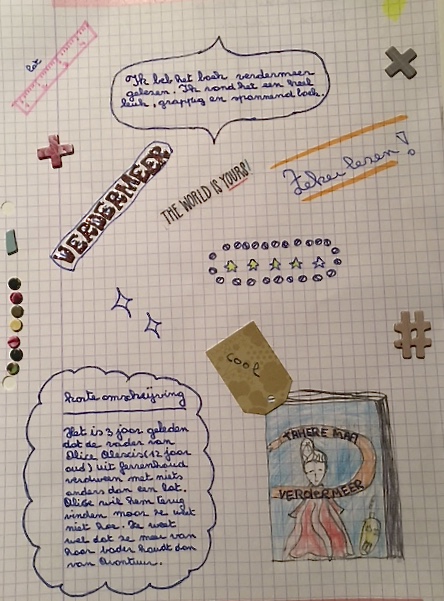 lat
Ik heb het boek verdermeer
gelezen. Ik vond het een heel
leuk, grappig en spannend boek.
VERDERMEER
THE WORLD IS YOURS!
Zeker lezen!
cool
Korte omschrijving
Het is 3 jaar geleden
dat de vader van
Olice Alexis (12 jaar
oud) uit ferrenhoud
verdween met niets
anders dan een lat.
Olice wil hem terug
vinden maar ze weet
niet hoe. Ze weet
wel dat ze meer van
haar vader houdt dan
van Avontuur.
TAHERE MAFI
VERDERMEER